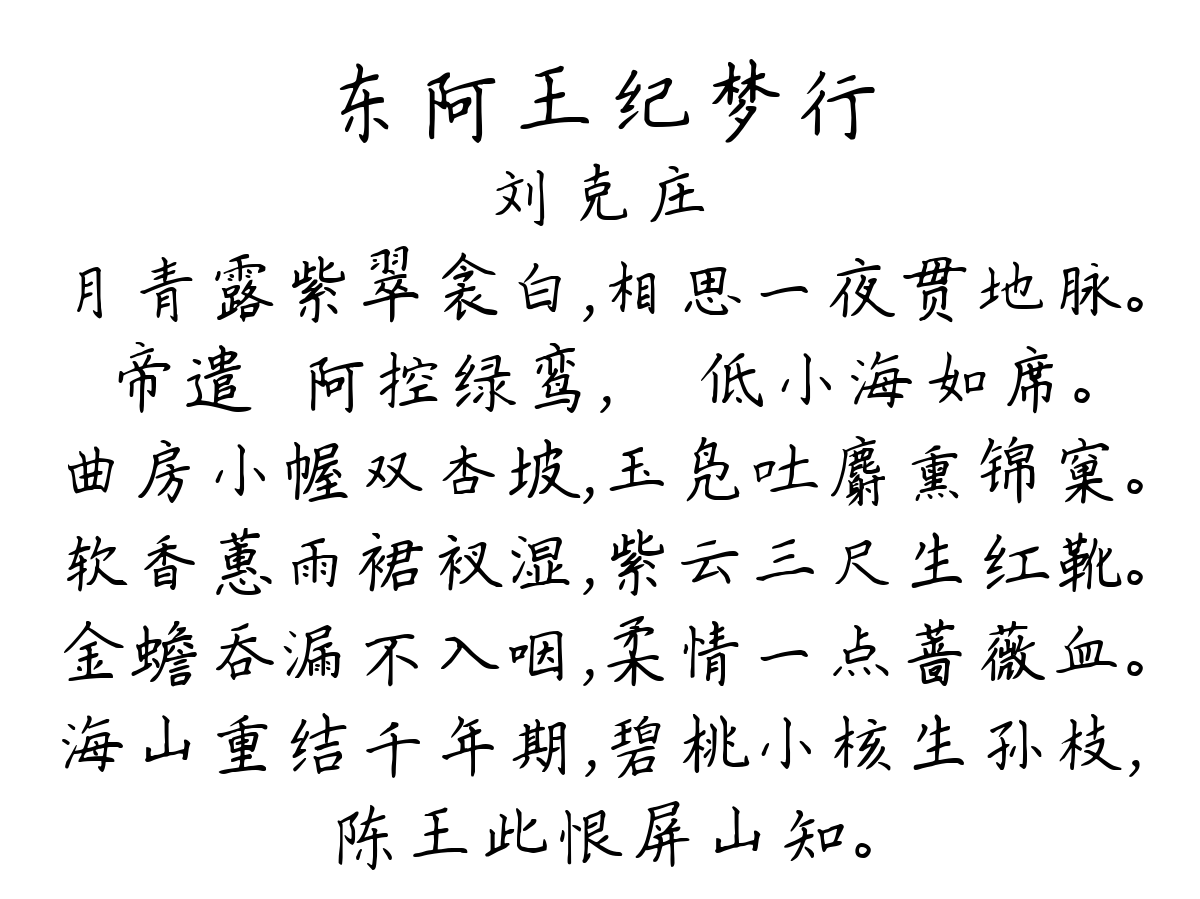 东阿王纪梦行
刘克庄
月青露紫翠衾白,相思一夜贯地脉。
帝遣 阿控绿鸾, 低小海如席。
曲房小幄双杏坡,玉凫吐麝熏锦窠。
软香蕙雨裙衩湿,紫云三尺生红靴。
金蟾吞漏不入咽,柔情一点蔷薇血。
海山重结千年期,碧桃小核生孙枝,
陈王此恨屏山知。